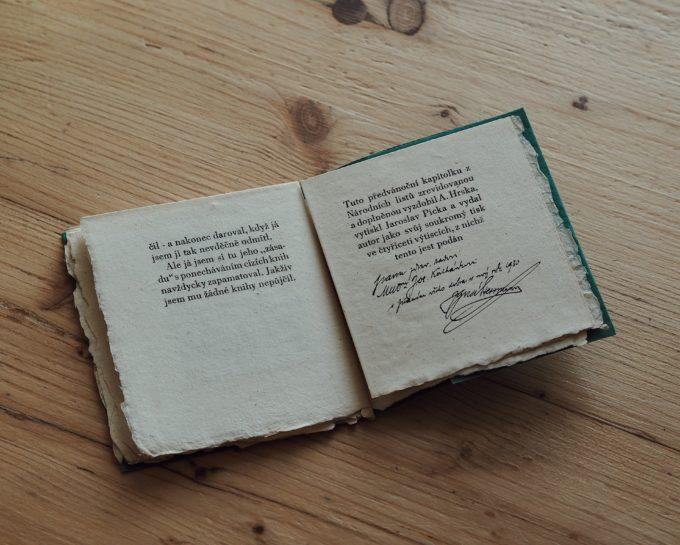 čil - a nakonec daroval, když já
jsem ji tak nevděčně odmítl.
Ale já jsem si tu jeho „zása-
du“ s ponecháváním cizích knih
navždycky zapamatoval. Jakživ
jsem mu žádné knihy nepůjčil.
Tuto předvánoční kapitolku z
Národních listů zrevidovanou
a doplněnou vyzdobil A. Hrska,
vytiskl Jaroslav Picka a vydal
autor jako svůj soukromý tisk
ve čtyřiceti výtiscích, z nichž
tento jest podán